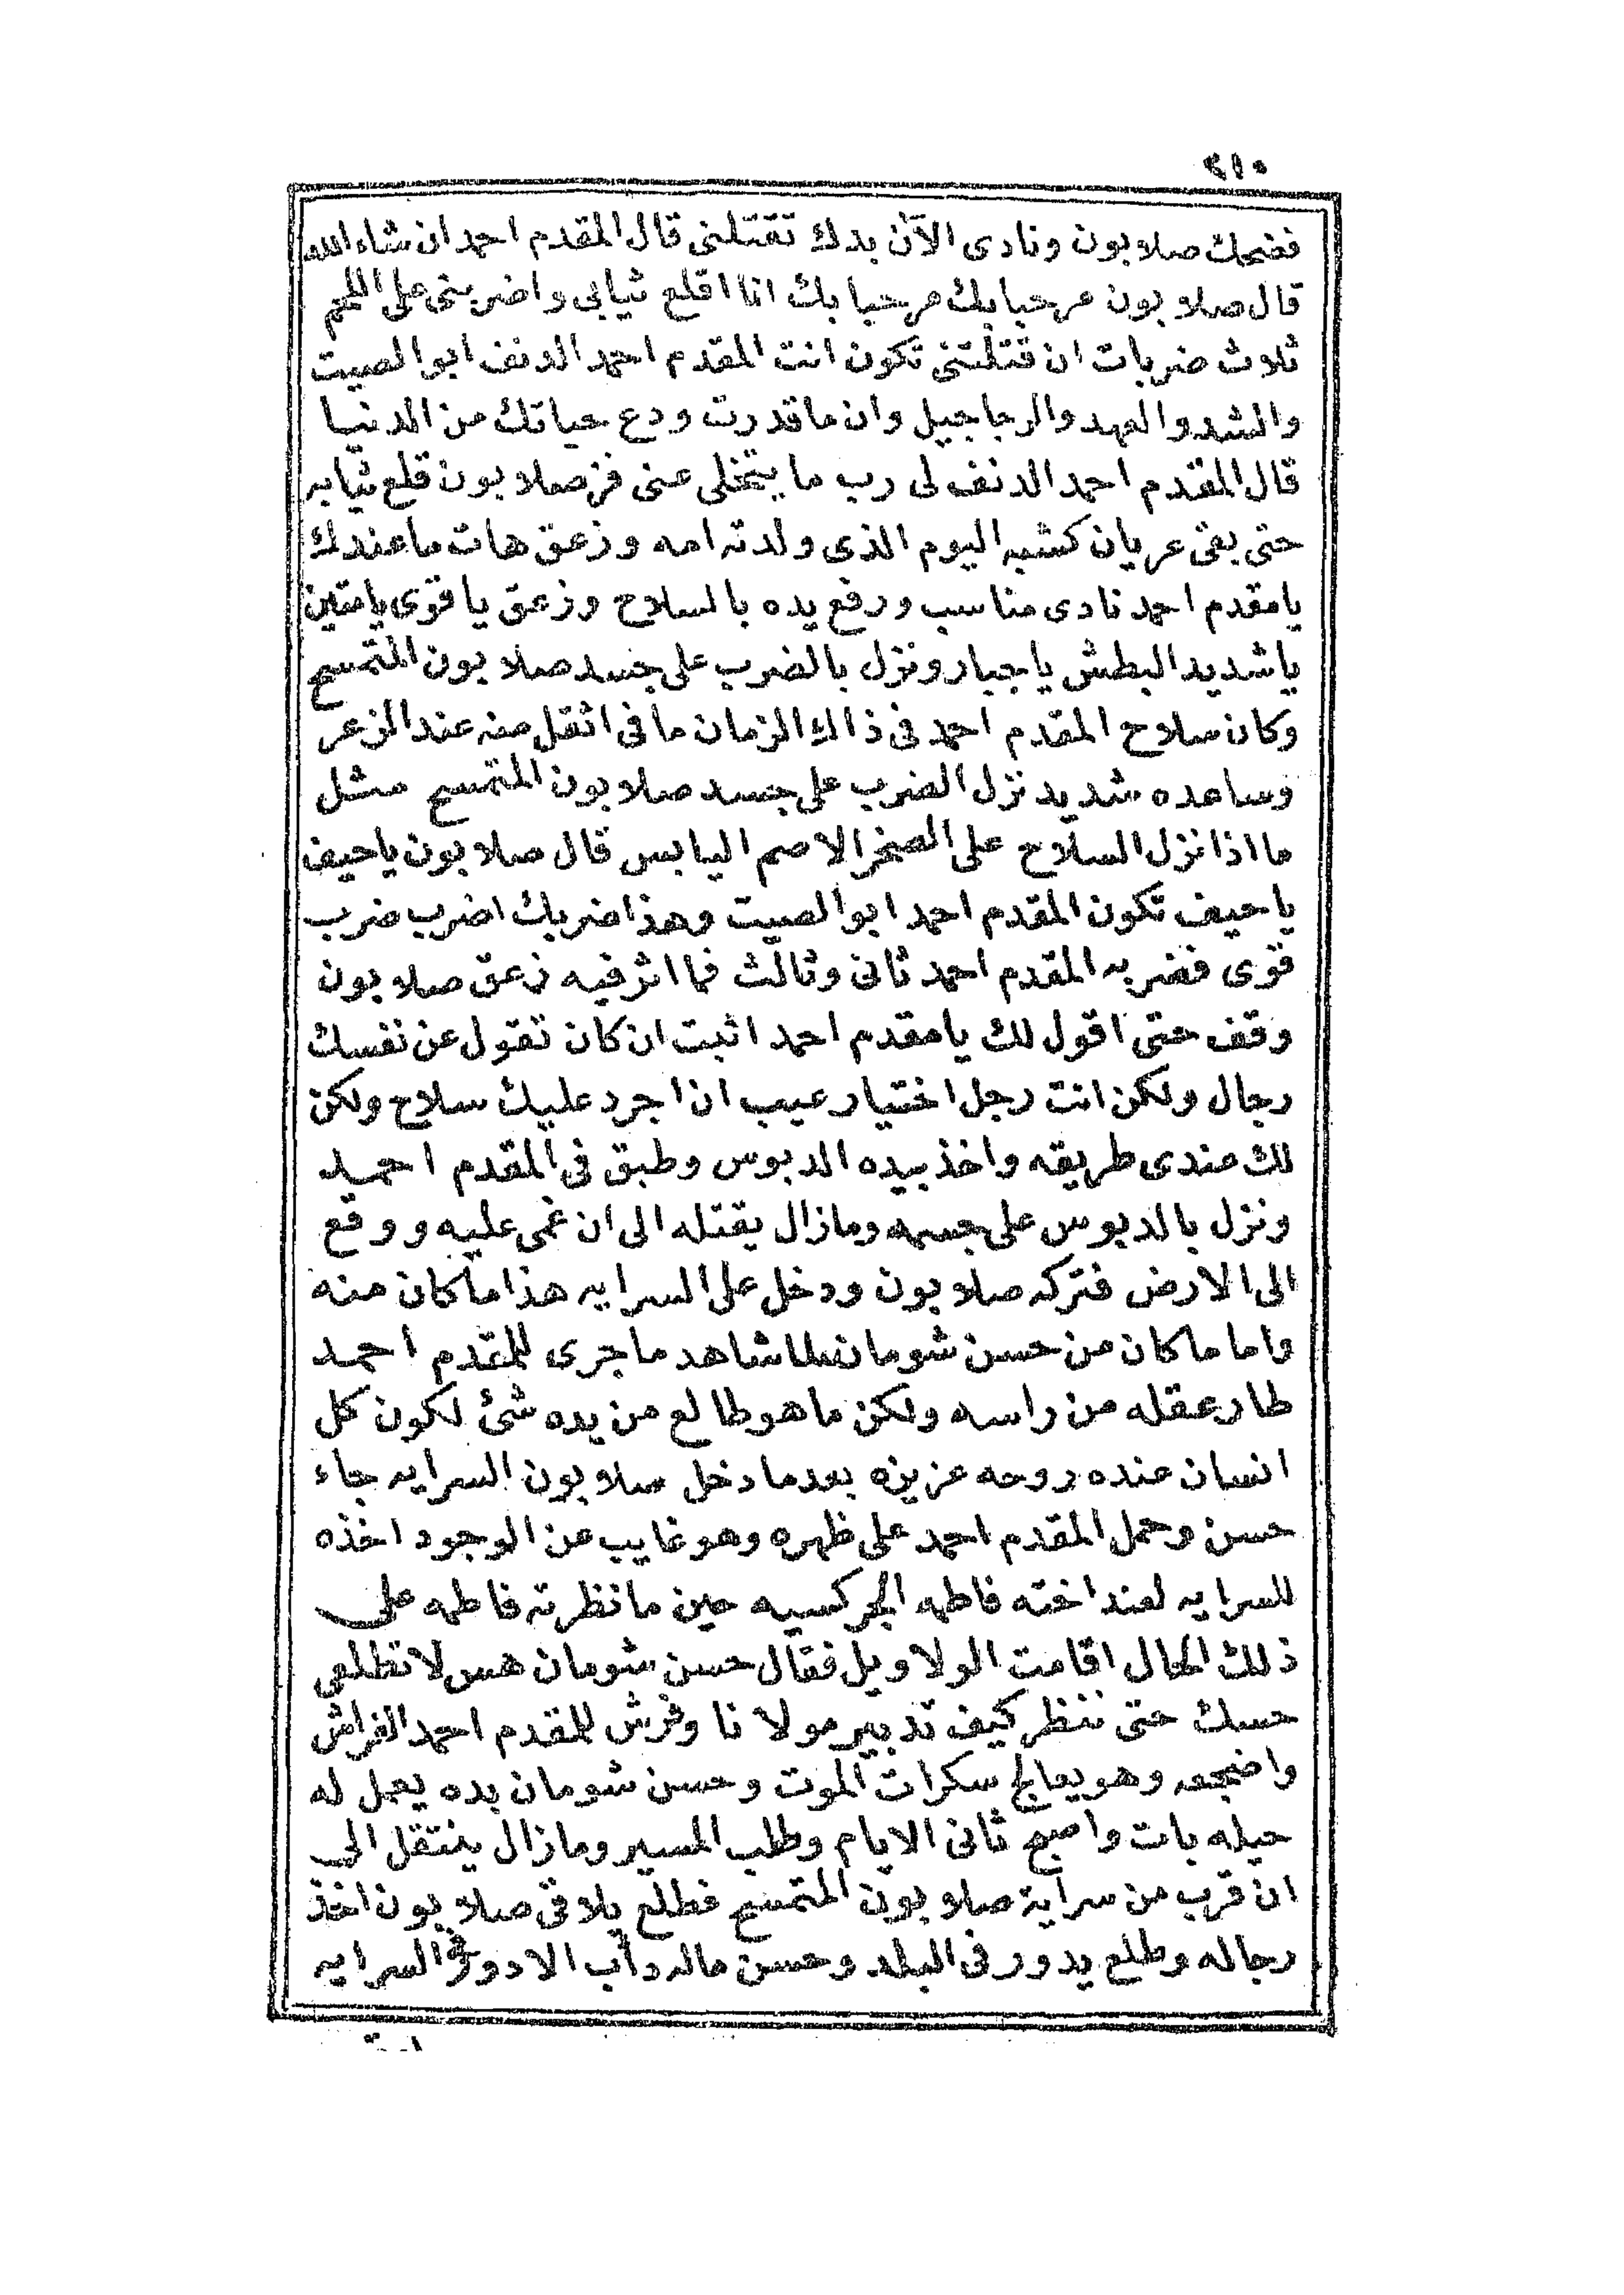 ٢١٥
فضحك صلابون ونادى الآن بدك تقتلنى قال المقدم احمد ان شاء الله
قال صلابون مرحبا بك مرحبا بك انا اقلع ثيابى واضربنى على اللحم
ثلاث ضربات ان قتلتنى تكون انت المقدم احمد الدنف ابو الصيت
والشد والعهد والرجاجيل وان ما قدرت ودع حياتك من الدنيا
قال المقدم احمد الدنف لى رب ما يتخلى عنى فز صلابون قلع ثيابه
حتى بقى عريان كشبه اليوم الذى ولدته امه وزعق هات ما عندك
يا مقدم احمد نادى مناسب ورفع يده بالسلاح وزعق يا قوى يا متين
يا شديد البطش يا جبار ونزل بالضرب على جسد صلابون المتمسح
وكان سلاح المقدم احمد فى ذالك الزمان ما فى اثقل منه عند الزعر
وساعده شديد نزل الضرب على جسد صلابون المتمسح مثل
ما اذا نزل السلاح على الصخر الاصم اليابس قال صلابون يا حيف
يا حيف تكون المقدم احمد ابو الصيت وهذا ضربك اضرب ضرب
قوى فضربه المقدم احمد ثانى وثالث فما اثر فيه زعق صلابون
وقف حتى اقول لك يا مقدم احمد اثبت ان كان تقول عن نفسك
رجال ولكن انت رجل اختيار عيب ان اجرد عليك سلاح ولكن
لك عندى طريقه واخذ بيده الدبوس وطبق فى المقدم احمد
ونزل بالدبوس على جسمه ومازال يقتله الى ان غمى عليه ووقع
الى الارض فتركه صلابون ودخل على السرايه هذا ما كان منه
واما ما كان من حسن شومان لما شاهد ما جرى للمقدم احمد
طار عقله من راسه ولكن ما هو طالع من يده شئ لكون كل
انسان عنده روحه عزيزه بعد ما دخل صلابون السرايه جاء
حسن وحمل المقدم احمد على ظهره وهو غايب عن الوجود اخذه
للسرايه لعند اخته فاطمه الجركسيه حين ما نظرته فاطمه على
ذلك الحال اقامت الولاويل فقال حسن شومان هس لا تطلعى
حسك حتى ننظر كيف تدبير مولانا وفرش للمقدم احمد الفراش
واضجعه وهو يعالج سكرات الموت وحسن شومان بده يعمل له
حيله بات واصبح ثانى الايام وطلب المسير ومازال ينتقل الى
ان قرب من سراية صلابون المتمسح فطلع يلاقى صلابون اخذ
رجاله وطلع يدور فى البلد وحسن ماله دأب الا دوغرى السرايه